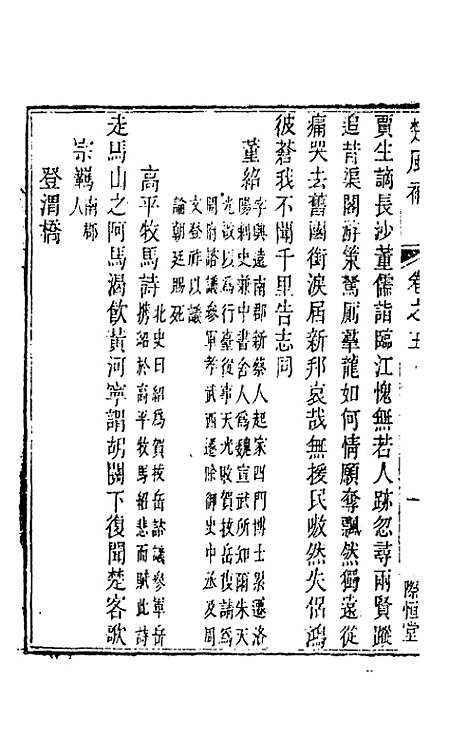 楚風補
卷之五
一
際恒堂
賈生謫長沙董儒詣臨江愧無若人跡忽尋兩賢蹤
追昔渠閣游策駑厠羣龍如何情願奪飄然獨遠從
痛哭去舊國銜淚屆新邦哀哉無援民嗷然失侶鴻
彼蒼我不聞千里告志同
董紹
字興遠南郡新蔡人起家四門博士累遷洛
陽刺史兼中書舍人爲魏宣武所知爾朱天
光啟以爲行臺從事天光敗賀拔岳復請爲
開府諮議參軍孝武西遷除御史中丞及周
文登祚以議
論朝廷賜死
高平牧馬詩
北史曰紹爲賀拔岳諮議參軍岳
携紹於高平牧馬紹悲而賦此詩
走馬山之阿馬渴飲黃河寧謂胡關下復聞楚客歌
宗羈
南郡
人
登渭橋